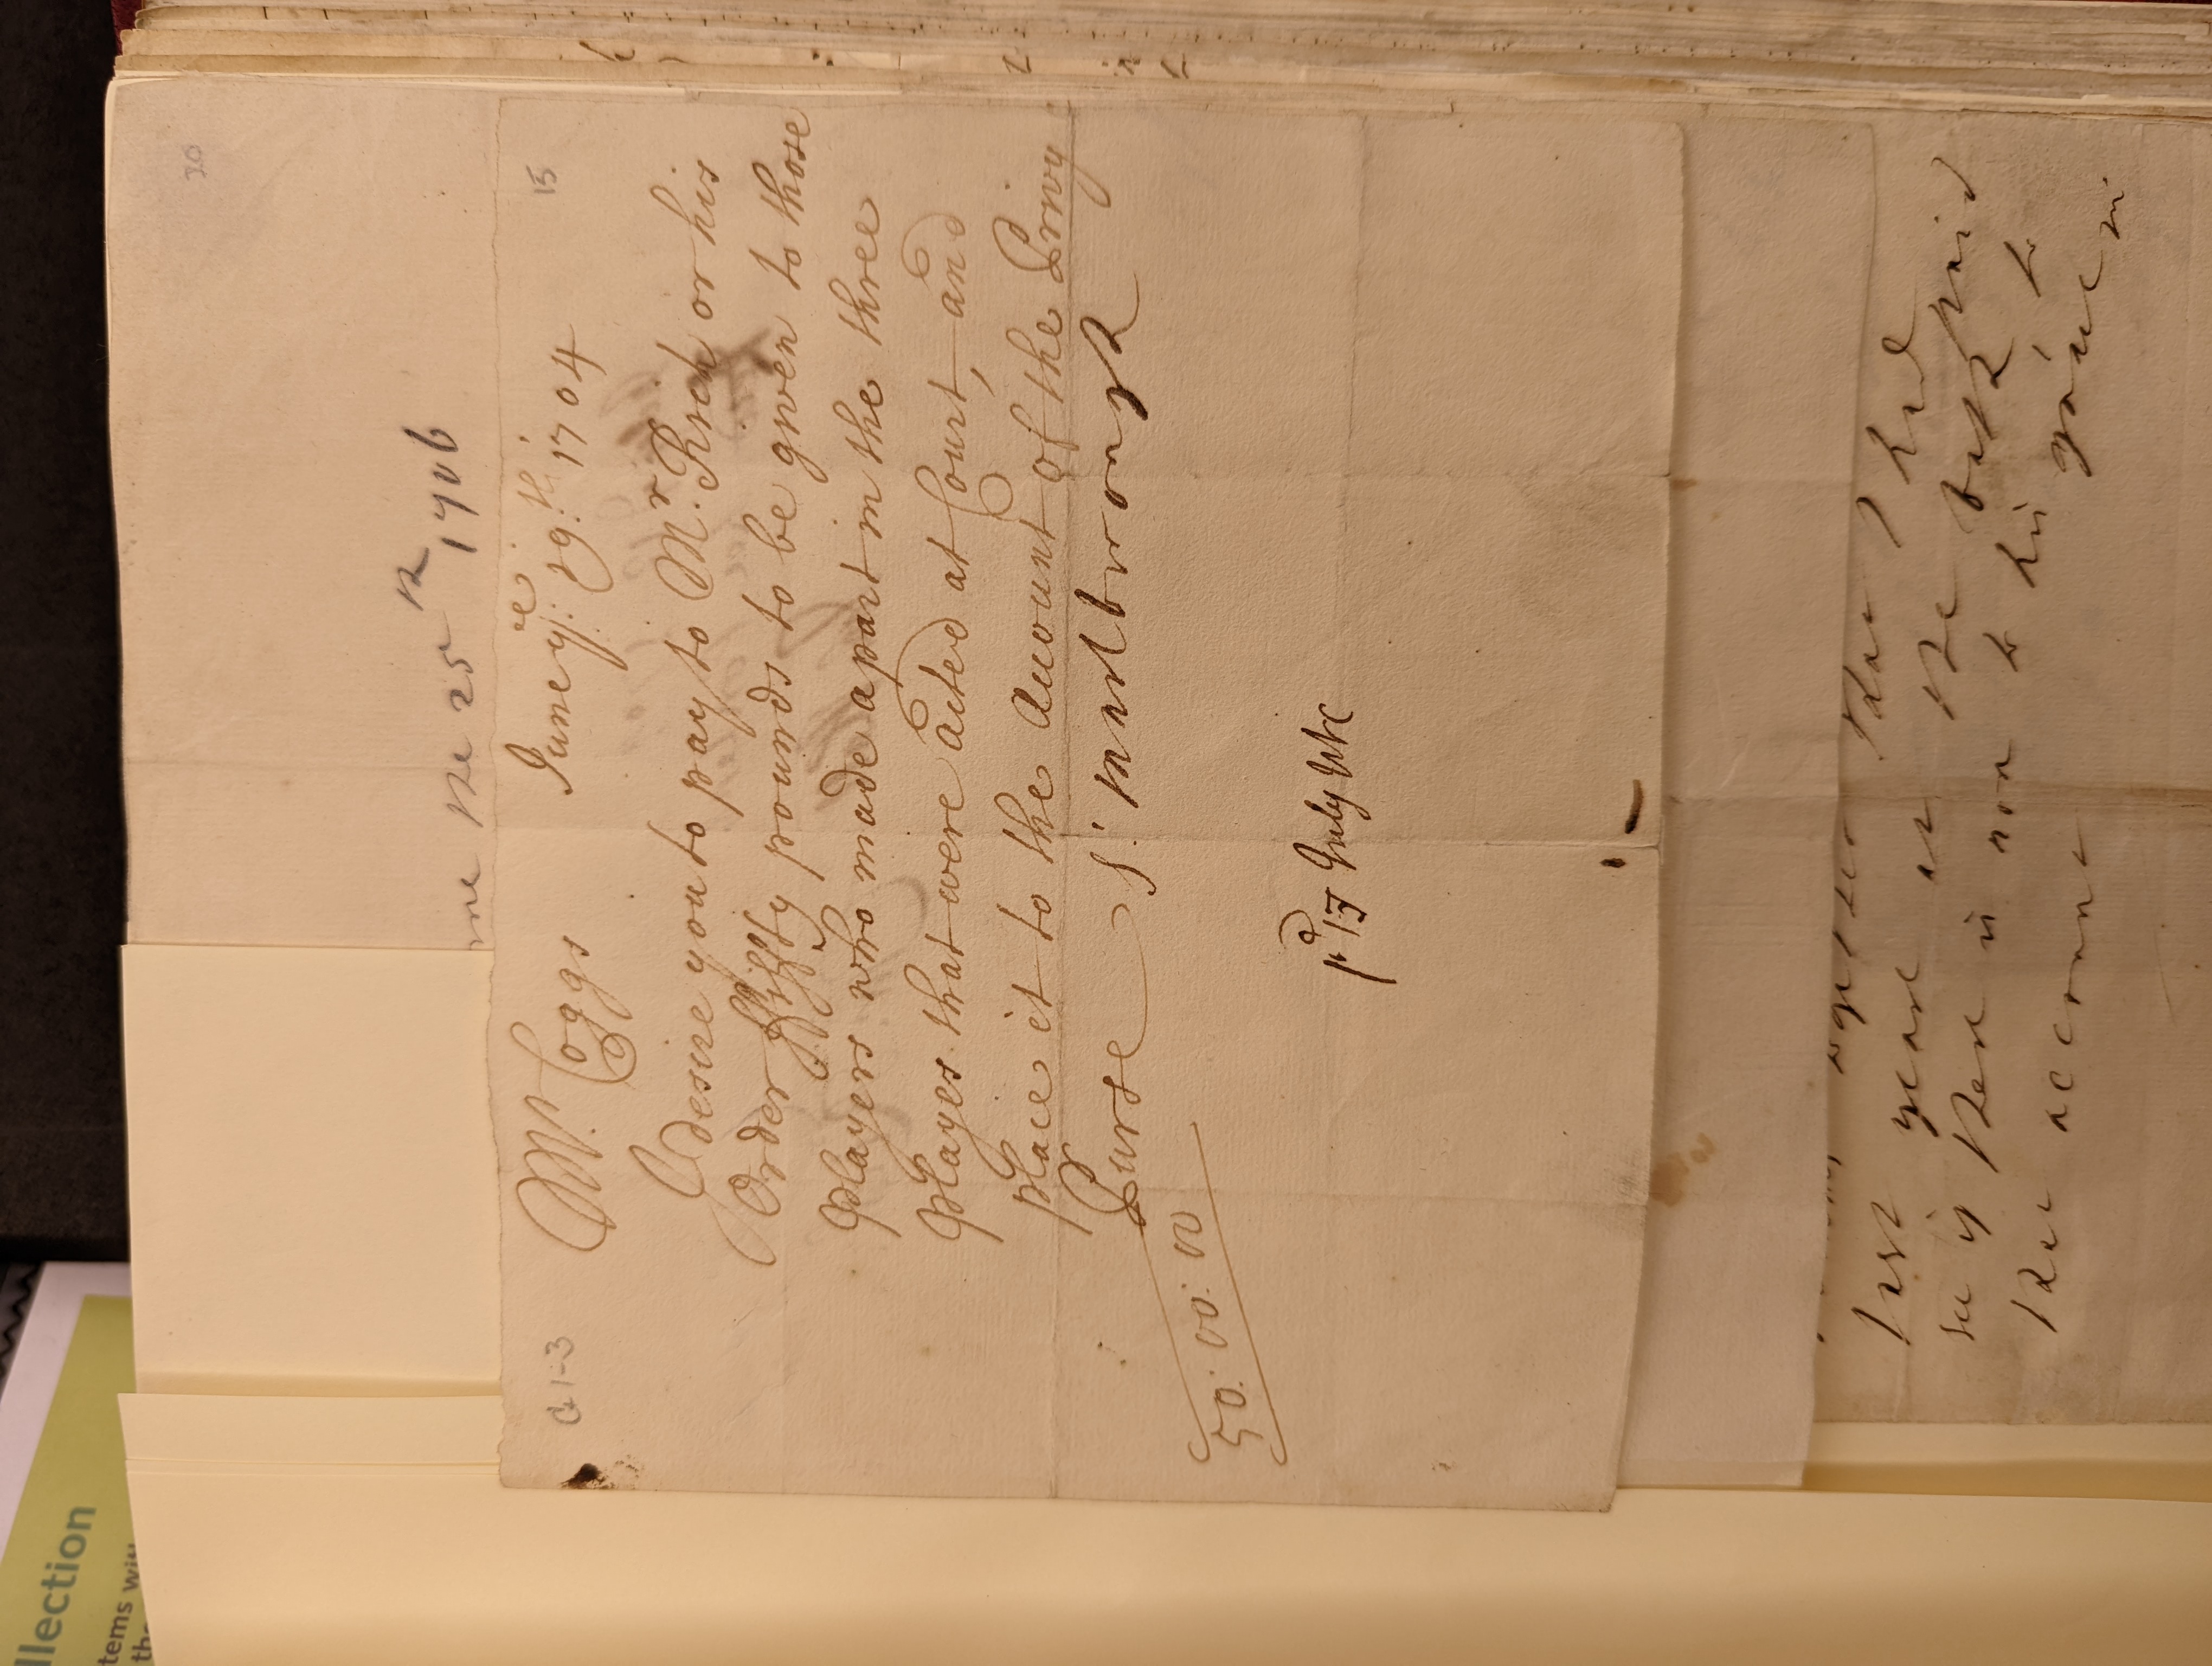 20
me the 25th 1706
G1-3
15
Mr. Coggs
June ye: 29th: 1704
I desire you to pay to Mr. Rich or his
Order ffiffty pounds to be given to those
players who made a part in the three
playes that were acted at Court, and
place it to the Account of the Privy
Purse
s: marlbrough
50: 00: 00
pd 17 July
last yeare
that I had
see is there is non to bath paid
the account
llection
tems wit